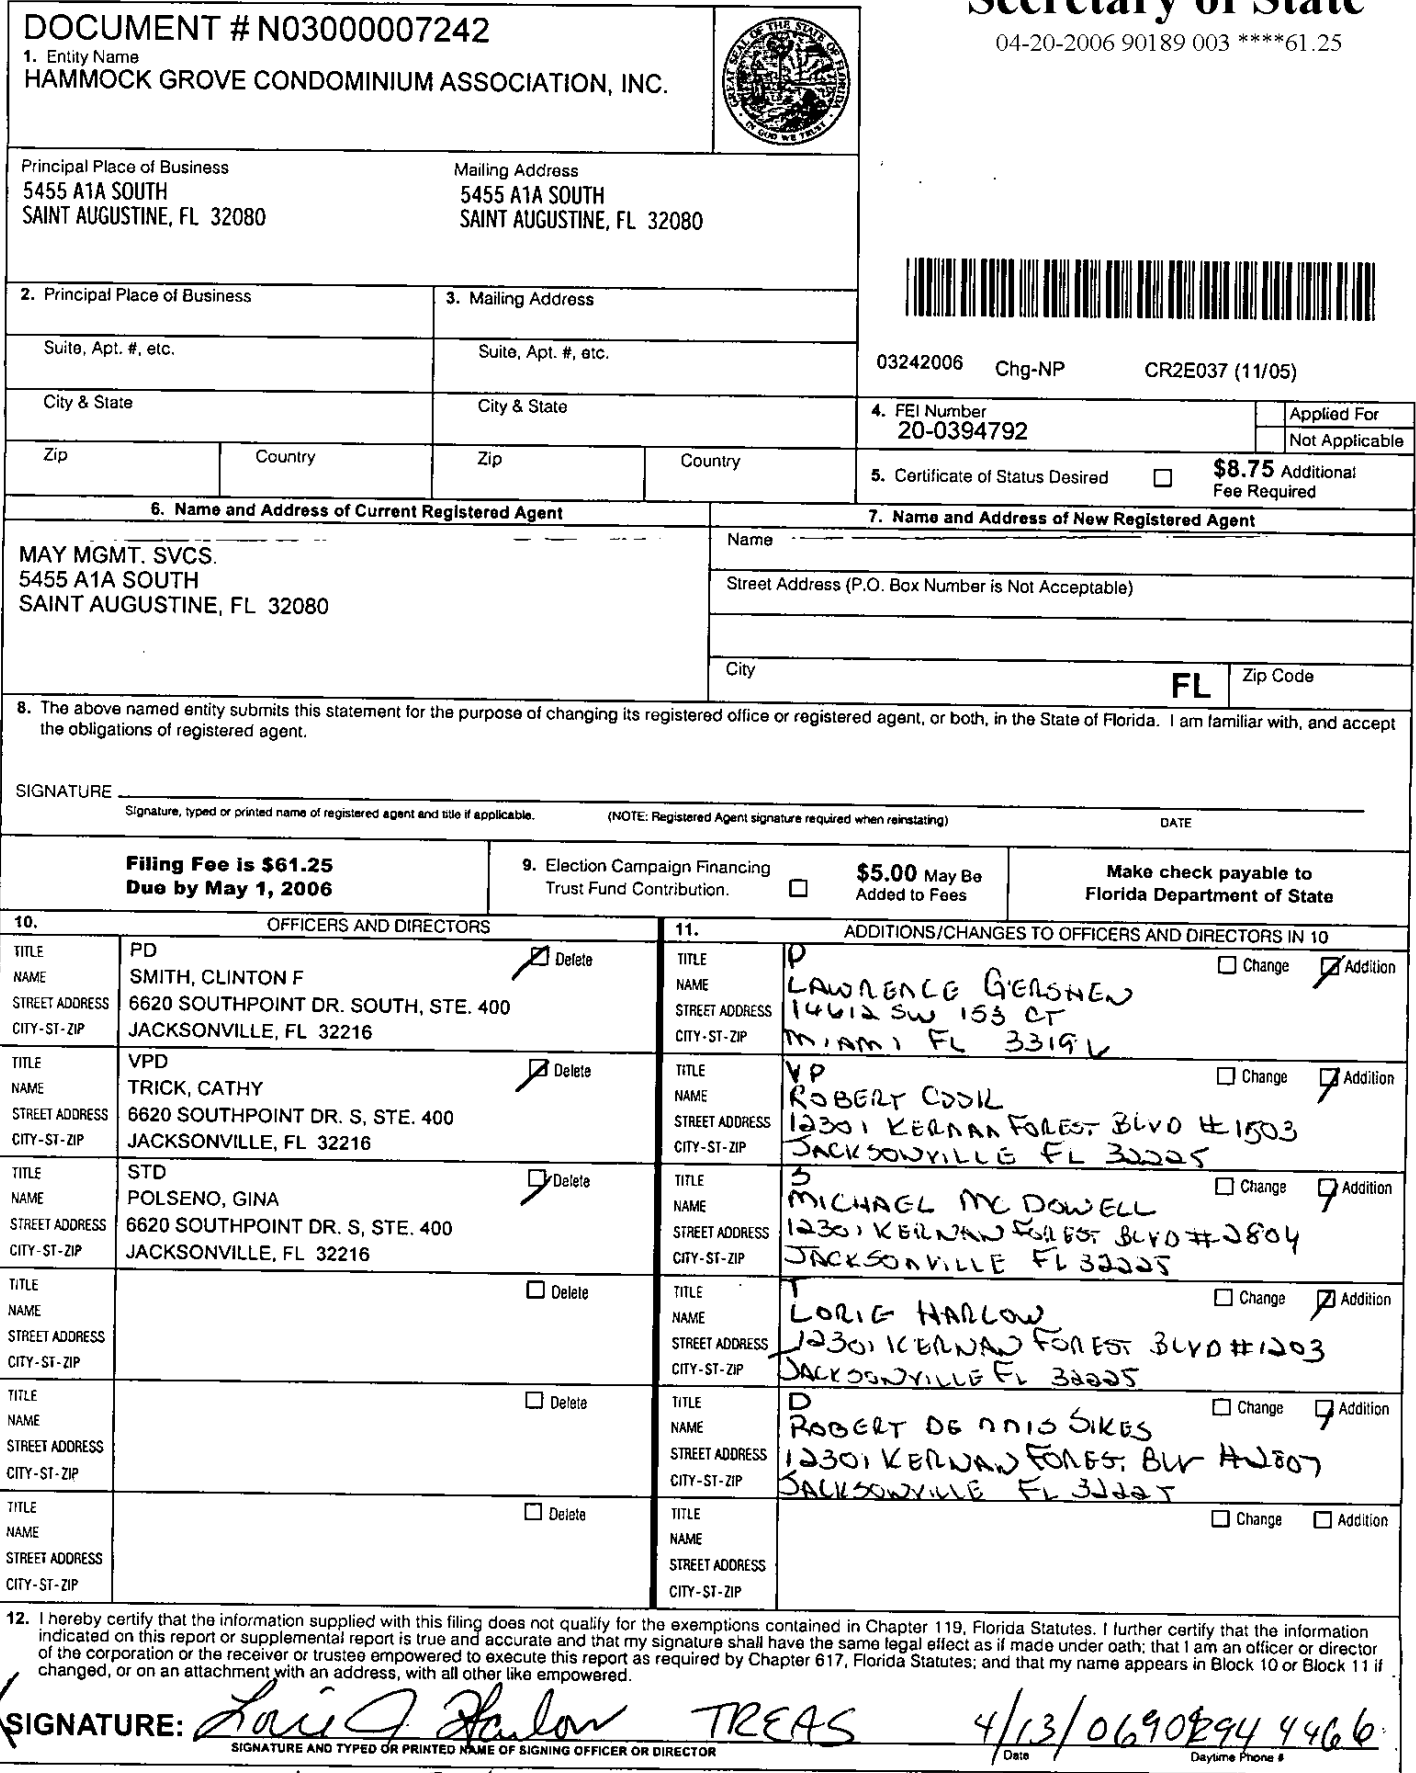 Secretary of State
04-20-2006 90189 003 ****61.25
DOCUMENT # N03000007242
1. Entity Name
HAMMOCK GROVE CONDOMINIUM ASSOCIATION, INC.
GREAT SEAL OF THE STATE OF FLORIDA
IN GOD WE TRUST
Principal Place of Business
5455 A1A SOUTH
SAINT AUGUSTINE, FL 32080
Mailing Address
5455 A1A SOUTH
SAINT AUGUSTINE, FL 32080
2. Principal Place of Business
3. Mailing Address
Suite, Apt. #, etc.
Suite, Apt. #, etc.
City & State
City & State
Zip
Country
Zip
Country
03242006 Chg-NP CR2E037 (11/05)
4. FEI Number
20-0394792
Applied For
Not Applicable
5. Certificate of Status Desired
$8.75 Additional
Fee Required
6. Name and Address of Current Registered Agent
MAY MGMT. SVCS.
5455 A1A SOUTH
SAINT AUGUSTINE, FL 32080
7. Name and Address of New Registered Agent
Name
Street Address (P.O. Box Number is Not Acceptable)
City
FL
Zip Code
8. The above named entity submits this statement for the purpose of changing its registered office or registered agent, or both, in the State of Florida. I am familiar with, and accept
the obligations of registered agent.
SIGNATURE
Signature, typed or printed name of registered agent and title if applicable.
(NOTE: Registered Agent signature required when reinstating)
DATE
Filing Fee is $61.25
Due by May 1, 2006
9. Election Campaign Financing
Trust Fund Contribution.
$5.00 May Be
Added to Fees
Make check payable to
Florida Department of State
10. OFFICERS AND DIRECTORS
TITLE PD Delete
NAME SMITH, CLINTON F
STREET ADDRESS 6620 SOUTHPOINT DR. SOUTH, STE. 400
CITY-ST-ZIP JACKSONVILLE, FL 32216
TITLE VPD Delete
NAME TRICK, CATHY
STREET ADDRESS 6620 SOUTHPOINT DR. S, STE. 400
CITY-ST-ZIP JACKSONVILLE, FL 32216
TITLE STD Delete
NAME POLSENO, GINA
STREET ADDRESS 6620 SOUTHPOINT DR. S, STE. 400
CITY-ST-ZIP JACKSONVILLE, FL 32216
TITLE Delete
NAME
STREET ADDRESS
CITY-ST-ZIP
TITLE Delete
NAME
STREET ADDRESS
CITY-ST-ZIP
TITLE Delete
NAME
STREET ADDRESS
CITY-ST-ZIP
11. ADDITIONS/CHANGES TO OFFICERS AND DIRECTORS IN 10
TITLE P Change Addition
NAME LAWRENCE GERSHEN
STREET ADDRESS 14612 SW 153 CT
CITY-ST-ZIP MIAMI FL
TITLE VP Change Addition
NAME ROBERT
STREET ADDRESS 12301 KERNAN FOREST BLVD #1503
CITY-ST-ZIP JACKSONVILLE FL 32225
TITLE S Change Addition
NAME MICHAEL MCDOWELL
STREET ADDRESS 12301 KERNAN FOREST BLVD #2804
CITY-ST-ZIP JACKSONVILLE FL 32225
TITLE T Change Addition
NAME LORIE HARLOW
STREET ADDRESS 12301 KERNAN FOREST BLVD #1203
CITY-ST-ZIP JACKSONVILLE FL 32225
TITLE D Change Addition
NAME ROBERT DENNIS SIKES
STREET ADDRESS 12301 KERNAN FOREST BLV #2807
CITY-ST-ZIP JACKSONVILLE FL 32225
TITLE Change Addition
NAME
STREET ADDRESS
CITY-ST-ZIP
12. I hereby certify that the information supplied with this filing does not qualify for the exemptions contained in Chapter 119, Florida Statutes. I further certify that the information
indicated on this report or supplemental report is true and accurate and that my signature shall have the same legal effect as if made under oath; that I am an officer or director
of the corporation or the receiver or trustee empowered to execute this report as required by Chapter 617, Florida Statutes; and that my name appears in Block 10 or Block 11 if
changed, or on an attachment with an address, with all other like empowered.
SIGNATURE: Lorie J. Harlow TREAS 4/13/06 4466
SIGNATURE AND TYPED OR PRINTED NAME OF SIGNING OFFICER OR DIRECTOR Date Daytime Phone #